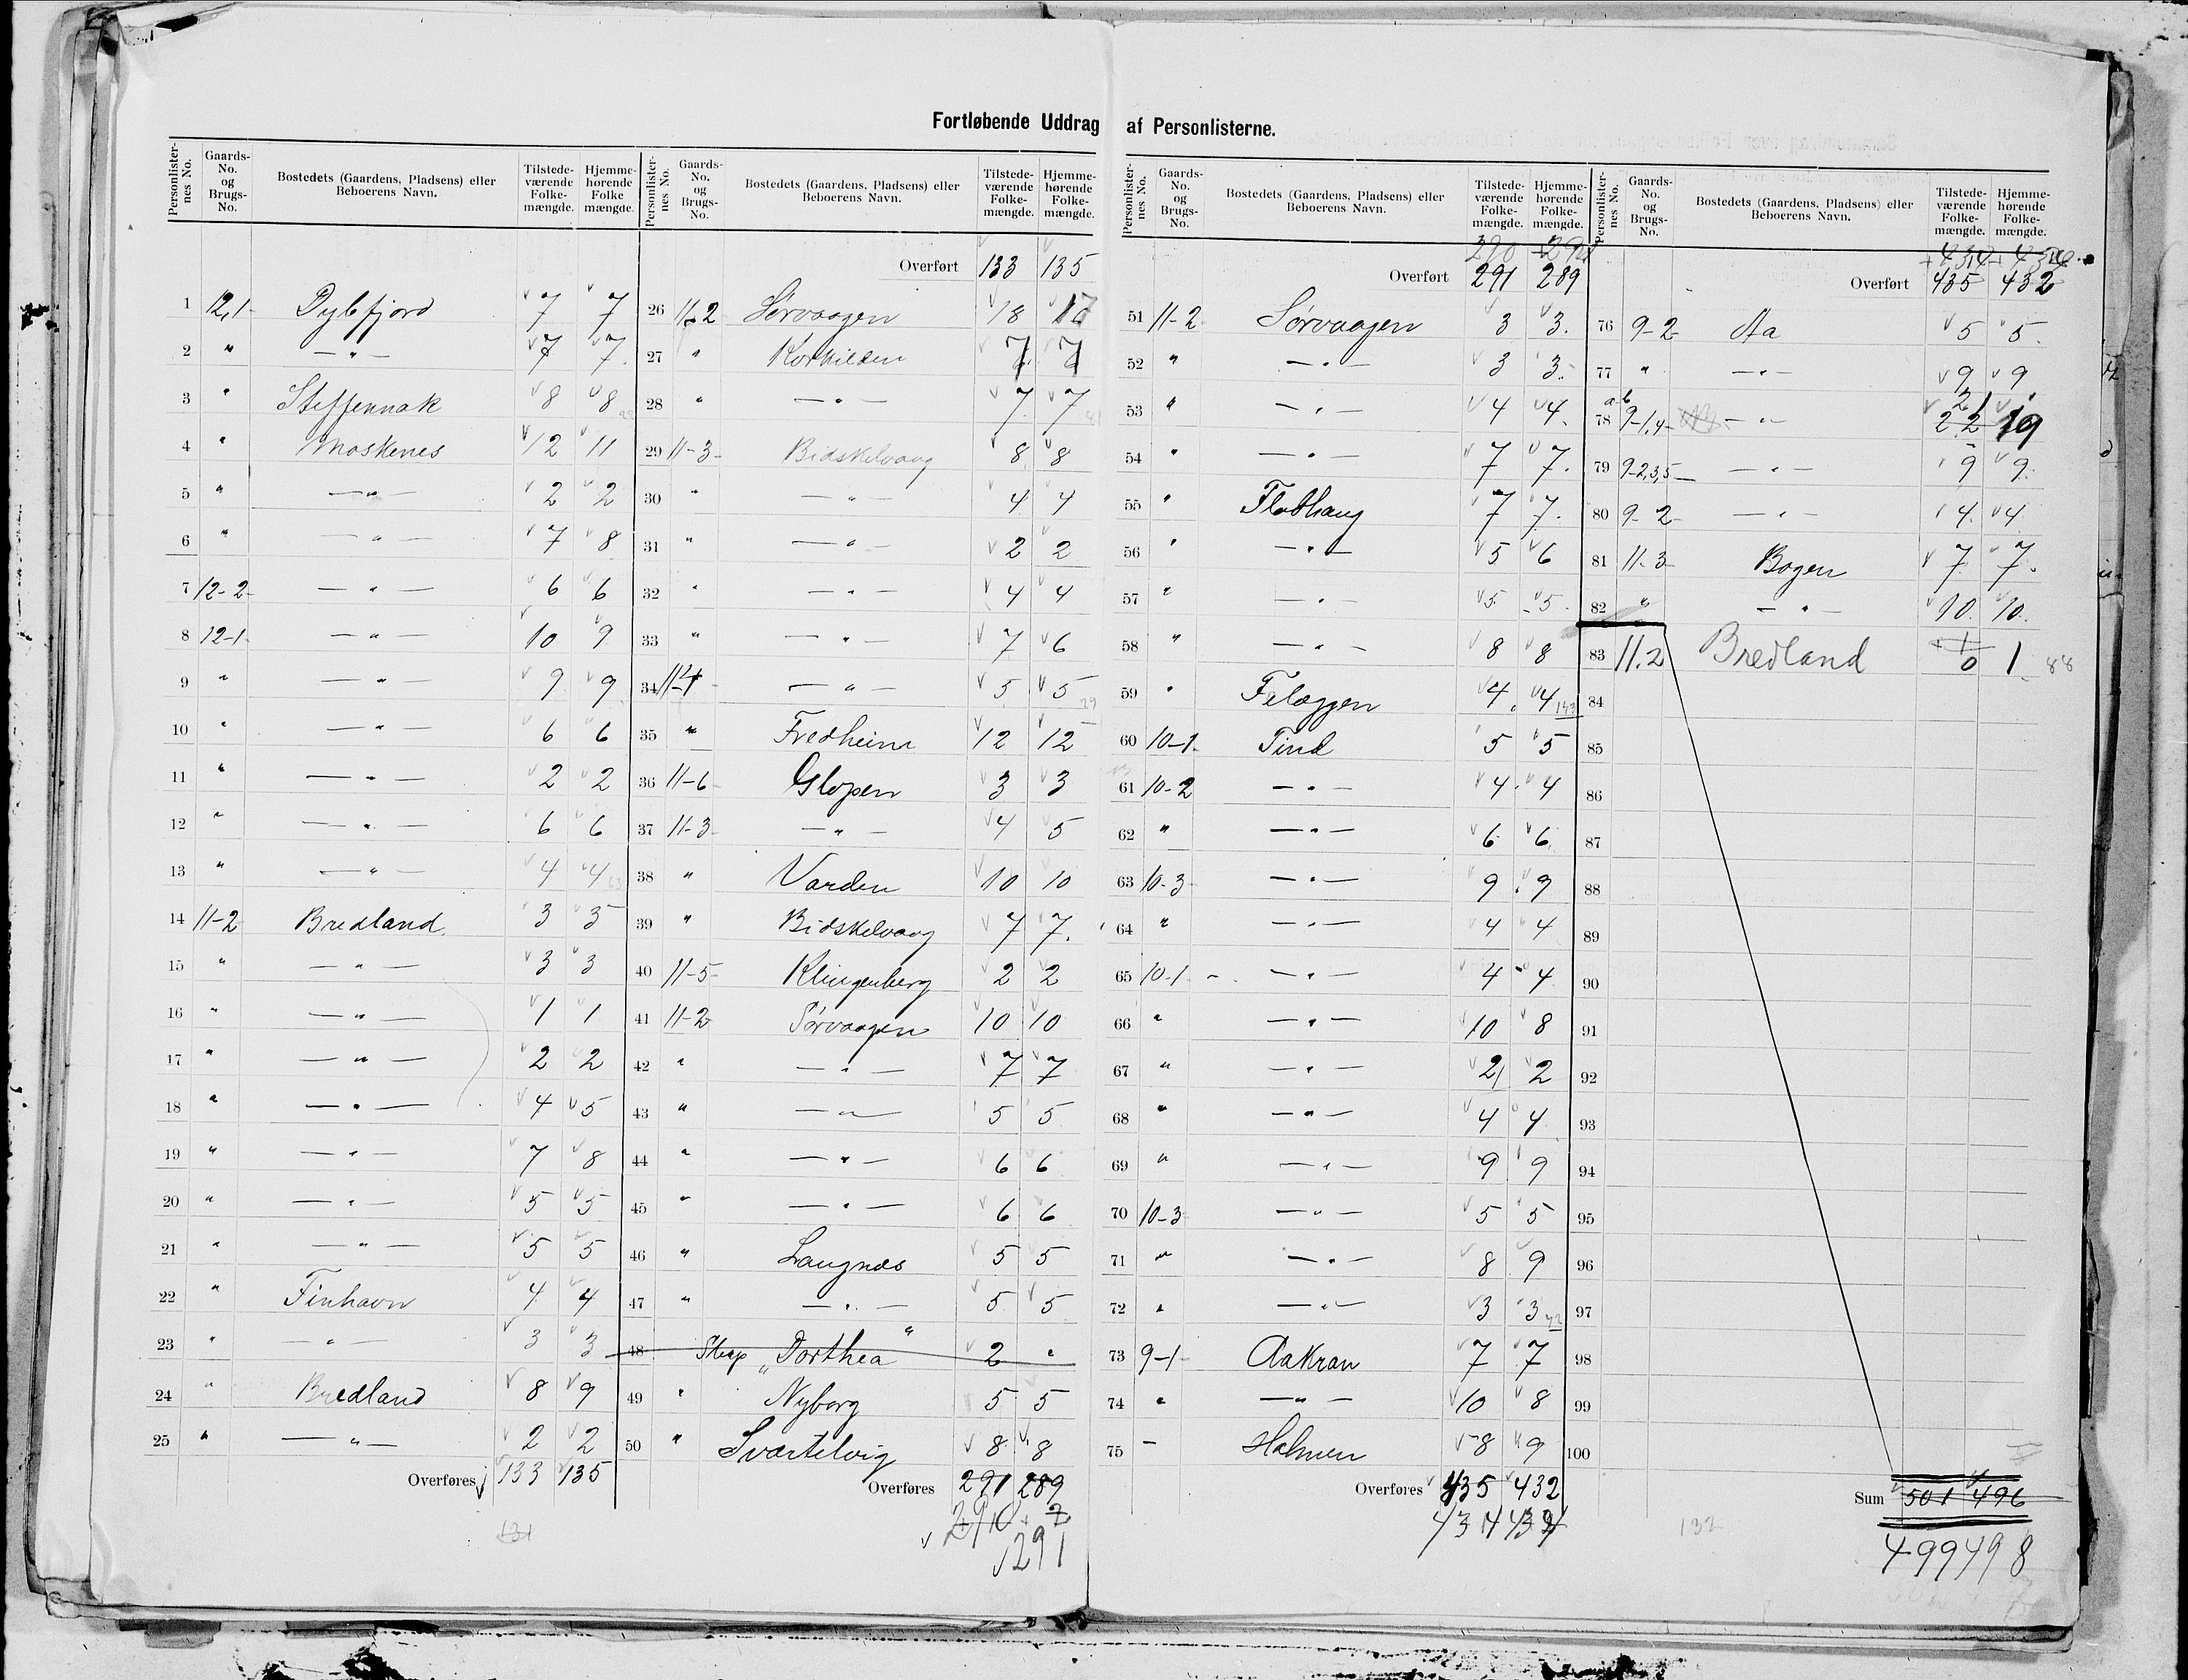 Fortløbende Uddrag af Personlisterne.
Personlister-nes No. | Gaards-No. og Brugs-No. | Bostedets (Gaardens, Pladsens) eller Beboerens Navn. | Tilstede-værende Folke-mængde. | Hjemme-hørende Folke mængde.
1 12,1 Dybfjord 7 7
2 " — " — 7 7
3 " Steffennak 8 8
4 " Moskenes 12 11
5 " — " — 2 2
6 " — " — 7 8
7 12-2 — " — 6 6
8 12-1 — " — 10 9
9 " — " — 9 9
10 " — " — 6 6
11 " — " — 2 2
12 " — " — 6 6
13 " — " — 4 4
14 11-2 Bredland 3 3
15 " — " — 3 3
16 " — " — 1 1
17 " — " — 2 2
18 " — " — 4 5
19 " — " — 7 8
20 " — " — 5 5
21 " — " — 5 5
22 " Finhavn 4 4
23 " — " — 3 3
24 " Bredland 8 9
25 " — " — 2 2
Overføres 133 135
131
Personlister-nes No. | Gaards-No. og Brugs-No. | Bostedets (Gaardens, Pladsens) eller Beboerens Navn. | Tilstede-værende Folke-mængde. | Hjemme-hørende Folke-mængde.
Overført 133 135
26 11-2 Sørvaagen 18 17
27 " Korkilden 7 7
28 " — " — 7 7
29 11-3 Bidskelvaag 8 8
30 " — " — 4 4
31 " — " — 2 2
32 " — " — 4 4
33 " — " — 7 6
34 11-4 — " — 5 5
35 " Fredheim 12 12
36 11-6 Glopen 3 3
37 11-3 — " — 4 5
38 " Varden 10 10
39 " Bidskelvaag 7 7.
40 11-5 Klingenberg 2 2
41 11-2 Sørvaagen 10 10
42 " — " — 7 7
43 " — " — 5 5
44 " — " — 6 6
45 " — " — 6 6
46 " Langnæs 5 5
47 " — " — 5 5
48 "Dorthea" 2 "
49 " Nyborg 5 5
50 " Sværtelvig 8 8
Overføres 291 289
290 + 2
291
Personlister-nes No. | Gaards-No. og Brugs-No. | Bostedets (Gaardens, Pladsens) eller Beboerens Navn. | Tilstede-værende Folke-mængde. | Hjemme-hørende Folke-mængde.
290 291
Overført 291 289
51 11-2 Sørvaagen 3 3.
52 " — " — 3 3.
53 " — " — 4 4.
54 " — " — 7 7.
55 " Flathaug 7 7.
56 " — " — 5 6
57 " — " — 5 5
58 " — " — 8 8
59 " Felæggen 4 4
60 10-1 Tind 5 5
61 10-2 — " — 4 4
62 " — " — 6 6
63 10-3 — " — 9 9
64 " — " — 4 4
65 10-1 — " — 4 4
66 " — " — 10 8
67 " — " — 2 2
68 " — " — 4 4
69 " — " — 9 9
70 10-3 — " — 5 5
71 " — " — 8 9
72 " — " — 3 3
73 9-1 Aakran 7 7
74 " — " — 10 8
75 — Holmen 8 9
Overføres 435 432
434 434
Personlister-nes No. | Gaards-No. og Brugs-No. | Bostedets (Gaardens, Pladsens) eller Beboerens Navn. | Tilstede-værende Folke-mængde. | Hjemme-hørende Folke-mængde.
434 434
Overført 435 432
76 9-2 Aa 5 5.
77 " — " — 9 9
78 a-b 9-1,4 — " — 21 22 19
79 9-2,3,5 — " — 9 9.
80 9-2 — " — 4. 4.
81 11-3 Bogen 7 7.
82 " — " — 10. 10.
83 11.2 Bredland 1 0 1 88
84
85
86
87
88
89
90
91
92
93
94
95
96
97
98
99
100
Sum 501 496
132
499 498